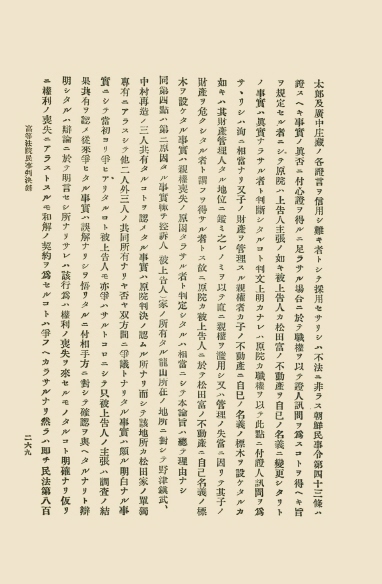 太郎及廣中庄藏ノ各證言ヲ信用シ難キ者トシテ採用セサリシハ不法ニ非ラス朝鮮民事令第四十三條ハ
證スヘキ事實ノ眞否ニ付心證ヲ得ルニ足ラサル場合ニ於テ職權ヲ以テ證人訊問ヲ爲スコトヲ得ヘキ旨
ヲ規定セル者ニシテ原院ハ上告人主張ノ如キ被上告人カ松田富ノ不動產ヲ自己ノ名義ニ變更シタリト
ノ事實ハ眞實ナラサル者ト判斷シタルコト判文上明カナレハ原院カ職權ヲ以テ此點ニ付證人訊問ヲ爲
サヽリシハ洵ニ相當ナリ又子ノ財產ヲ管理スル親權者カ子ノ不動產ニ自己ノ名義ノ標木ヲ設ケタルカ
如キハ其財產管理人タル地位ニ鑑ミ之レノミヲ以テ直ニ親權ヲ濫用シ又ハ管理ノ失當ニ因リテ其子ノ
財產ヲ危クシタル者ト謂フヲ得サル者トス故ニ原院カ被上告人ニ於テ松田富ノ不動產ニ自己名義ノ標
木ヲ設ケタル事實ハ親權喪失ノ原因タラサル者ト判定シタルハ相當ニシテ本論旨ハ總テ理由ナシ
同第四點ハ第二原因タル事實ハ控訴人(被上告人)家ノ所有タル龍山所在ノ地所ニ對シテ野津鎭武、
中村再造ノ三人共有タルコトヲ認メタル事實ハ原院判決ノ認ムル所ナリ而シテ該地所カ松田家ノ單獨
專有ニアラスシテ他二人外三人ノ共同所有ナリヤ否ヤ双方間ニ爭議トナリタル事實ハ頗ル明白ナル事
實ニシテ當初ヨリ爭ヒアリタルコト被上告人モ亦爭ハサルトコロニシテ只被上告人ノ主張ハ調査ノ結
果共有ヲ認メ從來爭ヒタル事實ハ誤解ナリシヲ悟リタルニ付相手方ニ對シテ確認ヲ與ヘタルナリト辯
明シタルハ辯論ニ於テ明言セシ所ナリサレハ該行爲ハ權利ノ喪失ヲ來セルモノタルコト明確ナリ假リ
ニ權利ノ喪失ニアラストスルモ和解ノ契約ヲ爲セルコトハ爭フヘカラサルナリ然ラハ即チ民法第八百
高等法院民事判決錄
二六九